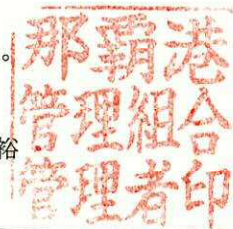 。
裕
那覇港
管理組合
管理者印